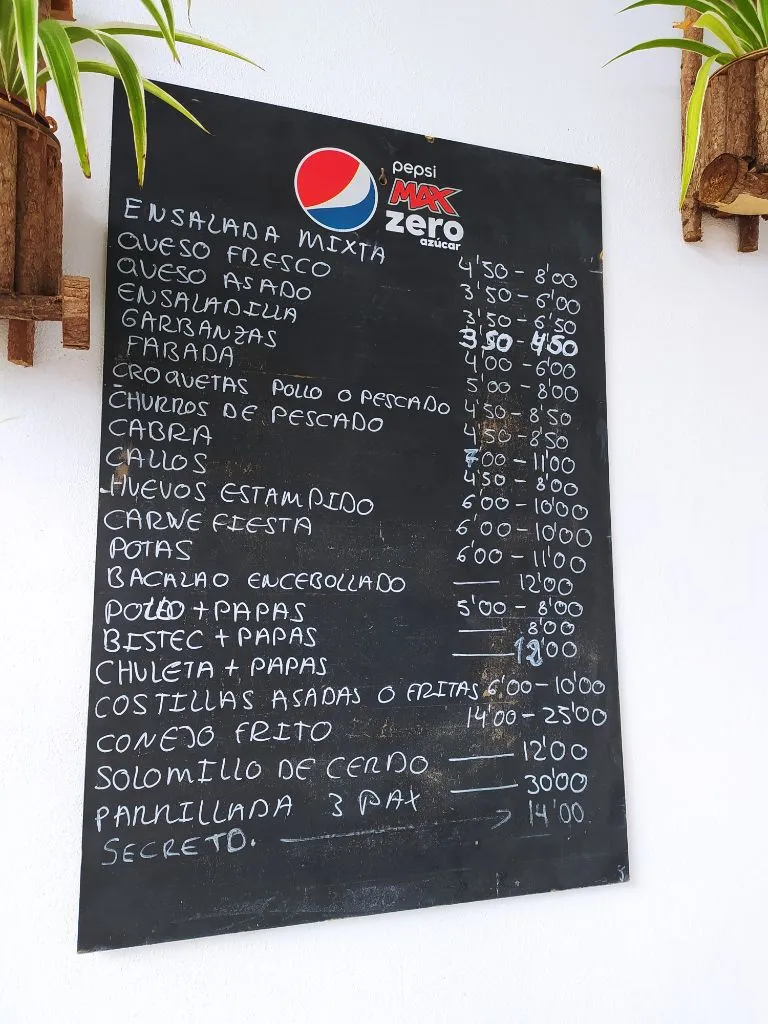 pepsi
MAX
zero
azúcar
ENSALADA MIXTA 4'50 - 8'00
QUESO FRESCO 3'50 - 6'00
QUESO ASADO 3'50 - 6'50
ENSALADILLA 3'50 - 4'50
GARBANZAS 4'00 - 6'00
FABADA 5'00 - 8'00
CROQUETAS POLLO O PESCADO 4'50 - 8'50
CHURROS DE PESCADO 4'50 - 8'50
CABRA 7'00 - 11'00
CALLOS 4'50 - 8'00
HUEVOS ESTAMPIDO 6'00 - 10'00
CARNE FIESTA 6'00 - 10'00
POTAS 6'00 - 11'00
BACALAO ENCEBOLLADO — 12'00
POLLO + PAPAS 5'00 - 8'00
BISTEC + PAPAS — 8'00
CHULETA + PAPAS — 12'00
COSTILLAS ASADAS O FRITAS 6'00 - 10'00
CONEJO FRITO 14'00 - 25'00
SOLOMILLO DE CERDO — 12'00
PARRILLADA 3 PAX — 30'00
SECRETO. → 14'00